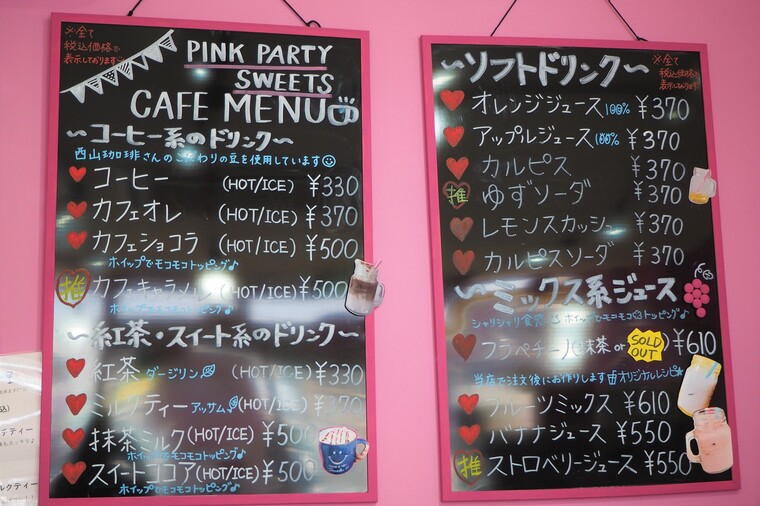 ※全て
税込価格で
表示しております
PINK PARTY
SWEETS
CAFE MENU
〜コーヒー系のドリンク〜
西山珈琲さんのこだわりの豆を使用しています
コーヒー (HOT/ICE) ¥330
カフェオレ (HOT/ICE) ¥370
カフェショコラ (HOT/ICE) ¥500
ホイップでモコモコトッピング♪
推 カフェキャラメル (HOT/ICE) ¥500
ホイップでモコモコトッピング♪
〜紅茶・スイート系のドリンク〜
紅茶 ダージリン (HOT/ICE) ¥330
ミルクティー アッサム (HOT/ICE) ¥370
抹茶ミルク (HOT/ICE) ¥500
ホイップでモコモコトッピング♪
スイートココア (HOT/ICE) ¥500
ホイップでモコモコトッピング♪
〜ソフトドリンク〜
※全て
税込価格で
表示しております
オレンジジュース 100% ¥370
アップルジュース 100% ¥370
カルピス ¥370
推 ゆずソーダ ¥370
レモンスカッシュ ¥370
カルピスソーダ ¥370
〜ミックス系ジュース
シャリシャリ食感 ホイップでモコモコトッピング♪
フラペチーノ(抹茶 or SOLD OUT) ¥610
当店で注文後にお作りします オリジナルレシピ
フルーツミックス ¥610
バナナジュース ¥550
推 ストロベリージュース ¥550